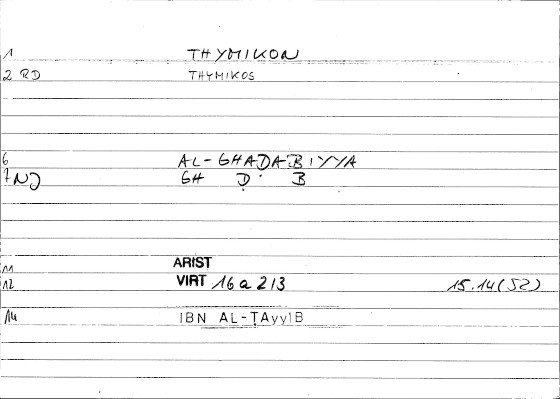 1 THYMIKON
2 RD THYMIKOS
6 AL-GHADABIYYA
7 NJ GH Ḍ B
11 ARIST
12 VIRT 16a2/3 15.14(52)
14 IBN AL-ṬAyyIB